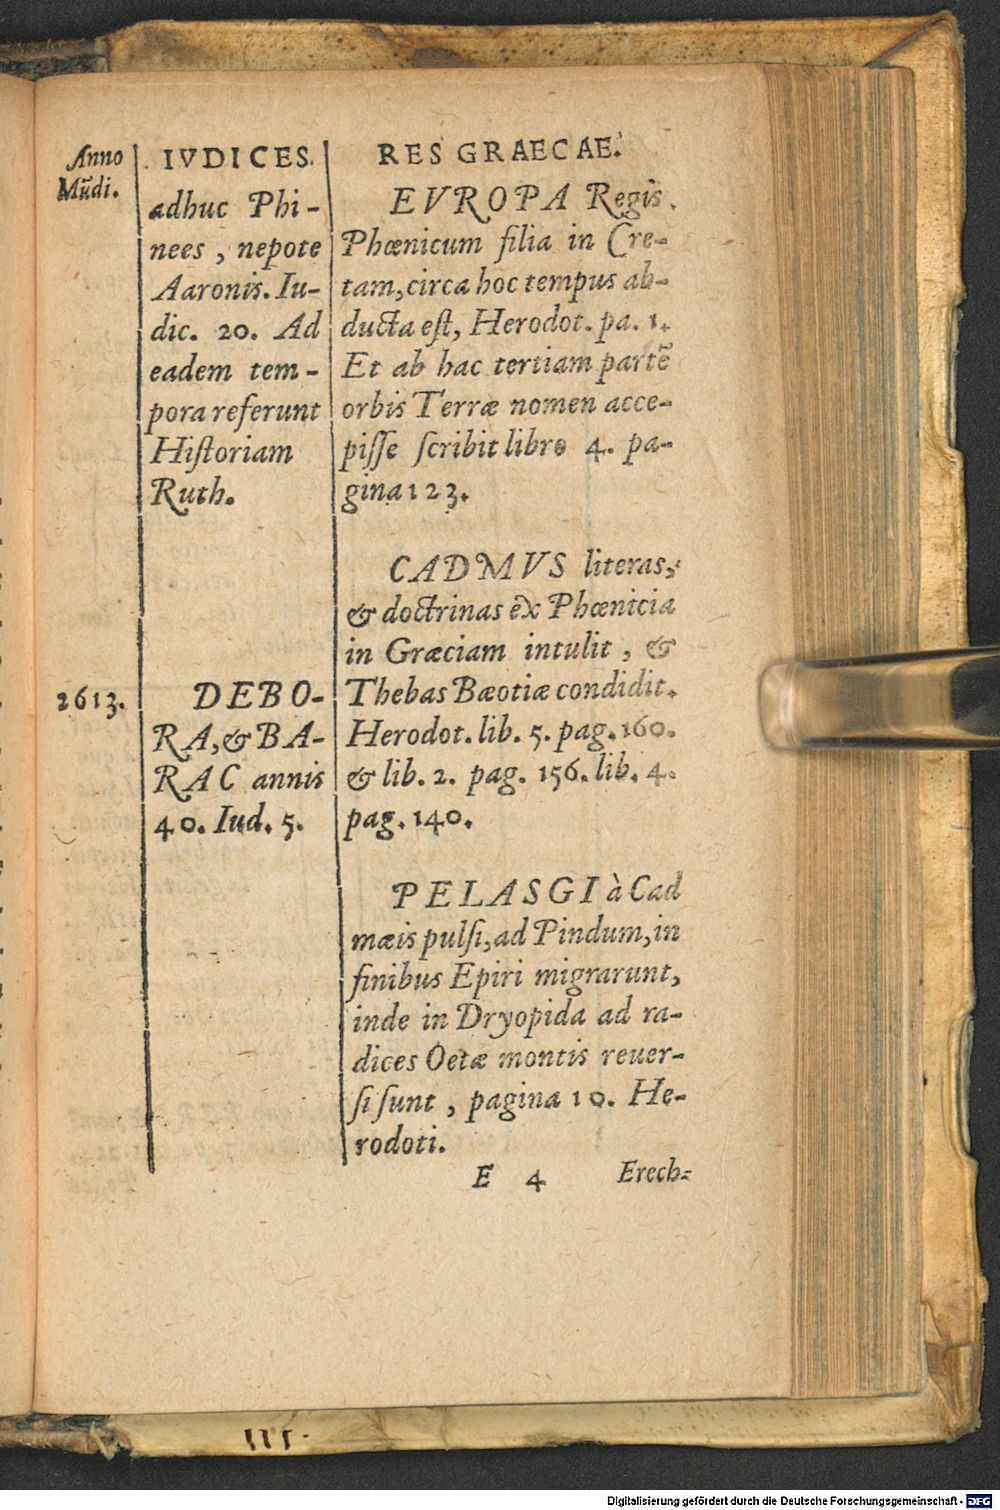 Anno
Mūdi.
IVDICES.
adhuc Phi-
nees, nepote
Aaronis. Iu-
dic. 20. Ad
eadem tem-
pora referunt
Historiam
Ruth.
2613.
DEBO-
RA, & BA-
RAC annis
40. Iud. 5.
RES GRAECAE.
EVROPA Regis
Phœnicum filia in Cre-
tam, circa hoc tempus ab-
ducta est, Herodot. pa. 1.
Et ab hac tertiam partē
orbis Terræ nomen acce-
pisse scribit libro 4. pa-
gina 123.
CADMVS literas,
& doctrinas ex Phœnicia
in Græciam intulit, &
Thebas Bœotiæ condidit.
Herodot. lib. 5. pag. 160.
& lib. 2. pag. 156. lib. 4.
pag. 140.
PELASGI à Cad
mæis pulsi, ad Pindum, in
finibus Epiri migrarunt,
inde in Dryopida ad ra-
dices Oetæ montis reuer-
si sunt, pagina 10. He-
rodoti.
E 4 Erech-
Digitalisierung gefördert durch die Deutsche Forschungsgemeinschaft - DFG